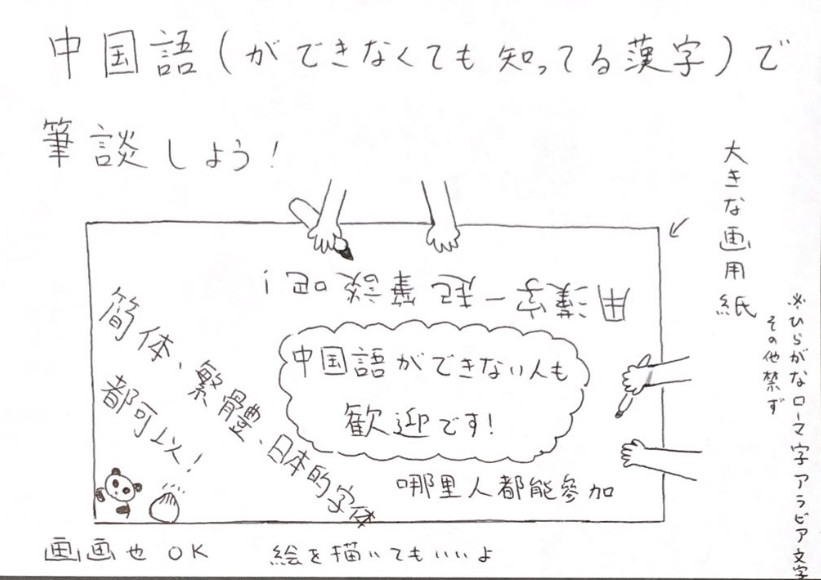 中国語(ができなくても知ってる漢字)で
筆談しよう!
大きな画用紙
※ひらがなローマ字アラビア文字
その他禁ず
用漢字一起筆談吧!
簡体、繁體、日本的字体
都可以!
中国語ができない人も
歓迎です!
哪里人都能參加
画画也OK
絵を描いてもいいよ